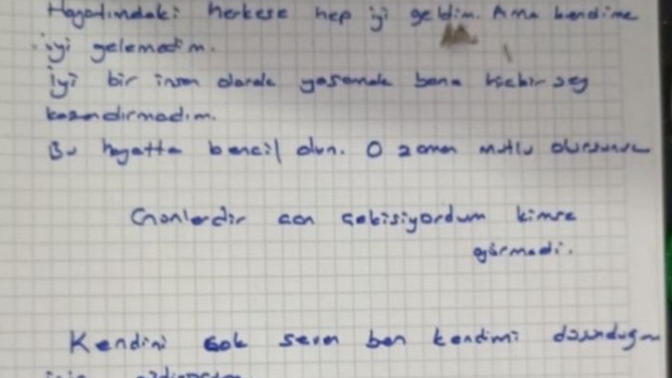 Hayatımdaki herkese hep iyi geldim. Ama kendime
iyi gelemedim.
İyi bir insan olarak yaşamak bana hiçbir şey
kazandırmadım.
Bu hayatta bencil olun. O zaman mutlu olursunuz
can çekişiyordum kimse
görmedi.
Kendini çok seven ben kendimi